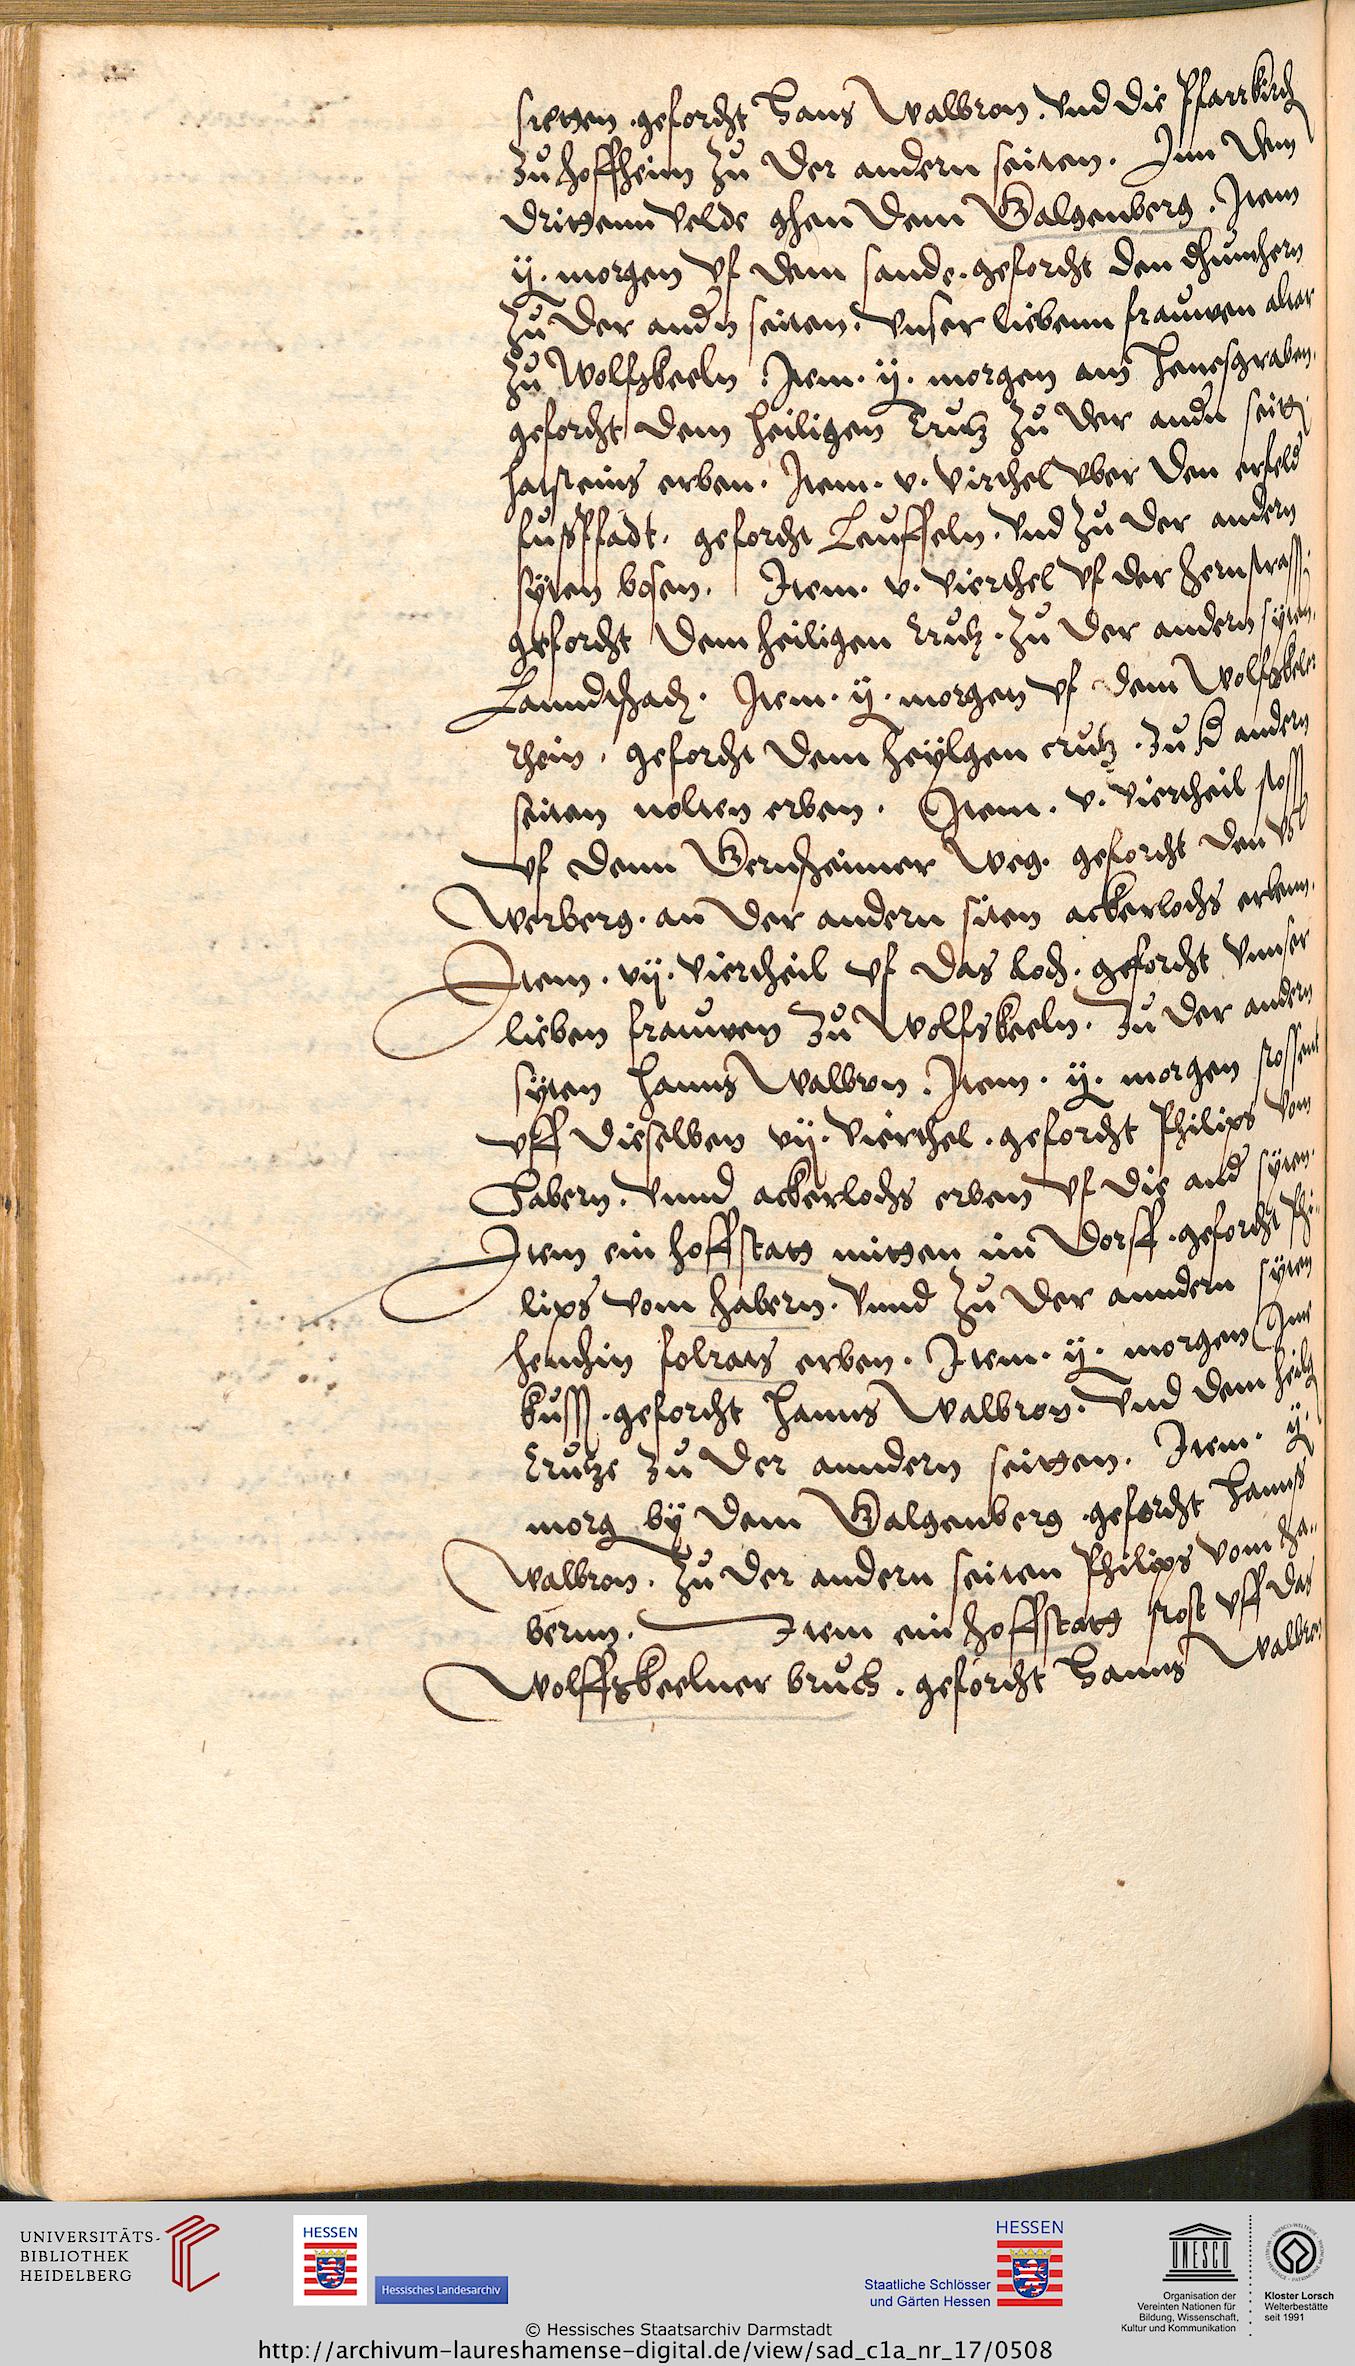 sietten . geforcht Hans Walbron . Vnd die Pfarrkirch
zu hoffheim zu der andern seiten . Inn dem
drittenn Velde ghen dem Galgenberg . Item
ij . morgen vf dem sande . geforcht den
zu der andern seiten . Vnser liebenn frauwen altar
zu Wolfskeeln . Item . ij . morgen am Henesgraben .
geforcht dem heiligen Crutz zu der andern
erben . Item . v . virthel vber den erfeld
fußpfadt . geforcht Leuffeln . Vnd zu der andern
syten bosen . Item . v . vierthel vf der hernstrass
geforcht dem heiligen Crutz . zu der andern syten .
Lanndtschad . Item . ij . morgen vf dem Wolfskeler
rhein . geforcht dem heylgen crutz . zu d andern
seiten nolten erben . Item . v . viertheil stoss
vf denn Gernsheimer Weg . geforcht den
Werberg . an der andern siten ackerlochs erbenn .
Item . vij . viertheil vf das loch . geforcht Vnnser
lieben frauwen zu Wolfskeeln . zu der andern
syten Hanns Walbron . Item . ij . morgen stossent
vff dieselben vij . vierthel . geforcht Philips vom
Habern . Vnnd ackerlochs erben vf die and syten .
Item ein hoffstatt mitten im Dorff . geforcht Phi-
lips vom Habern . Vnnd zu der anndern syten
henchin folrats erben . Item . ij . morgen Inn
kuss . geforcht Hanns Walbron . Vnd dem heilg
Crutze zu der anndern seitten . Item . ij .
morg by dem Galgenberg . geforcht Hannß
Walbron . zu der andern seiten Philips vom Ha-
bernn . Item ein hoffstatt stost vff das
Wolffskeelner bruch . geforcht Hanns Walbron
UNIVERSITÄTS-
BIBLIOTHEK
HEIDELBERG
HESSEN
Hessisches Landesarchiv
HESSEN
Staatliche Schlösser
und Gärten Hessen
UNESCO
Organisation der
Vereinten Nationen für
Bildung, Wissenschaft,
Kultur und Kommunikation
Kloster Lorsch
Welterbestätte
seit 1991
© Hessisches Staatsarchiv Darmstadt
http://archivum-laureshamense-digital.de/view/sad_c1a_nr_17/0508